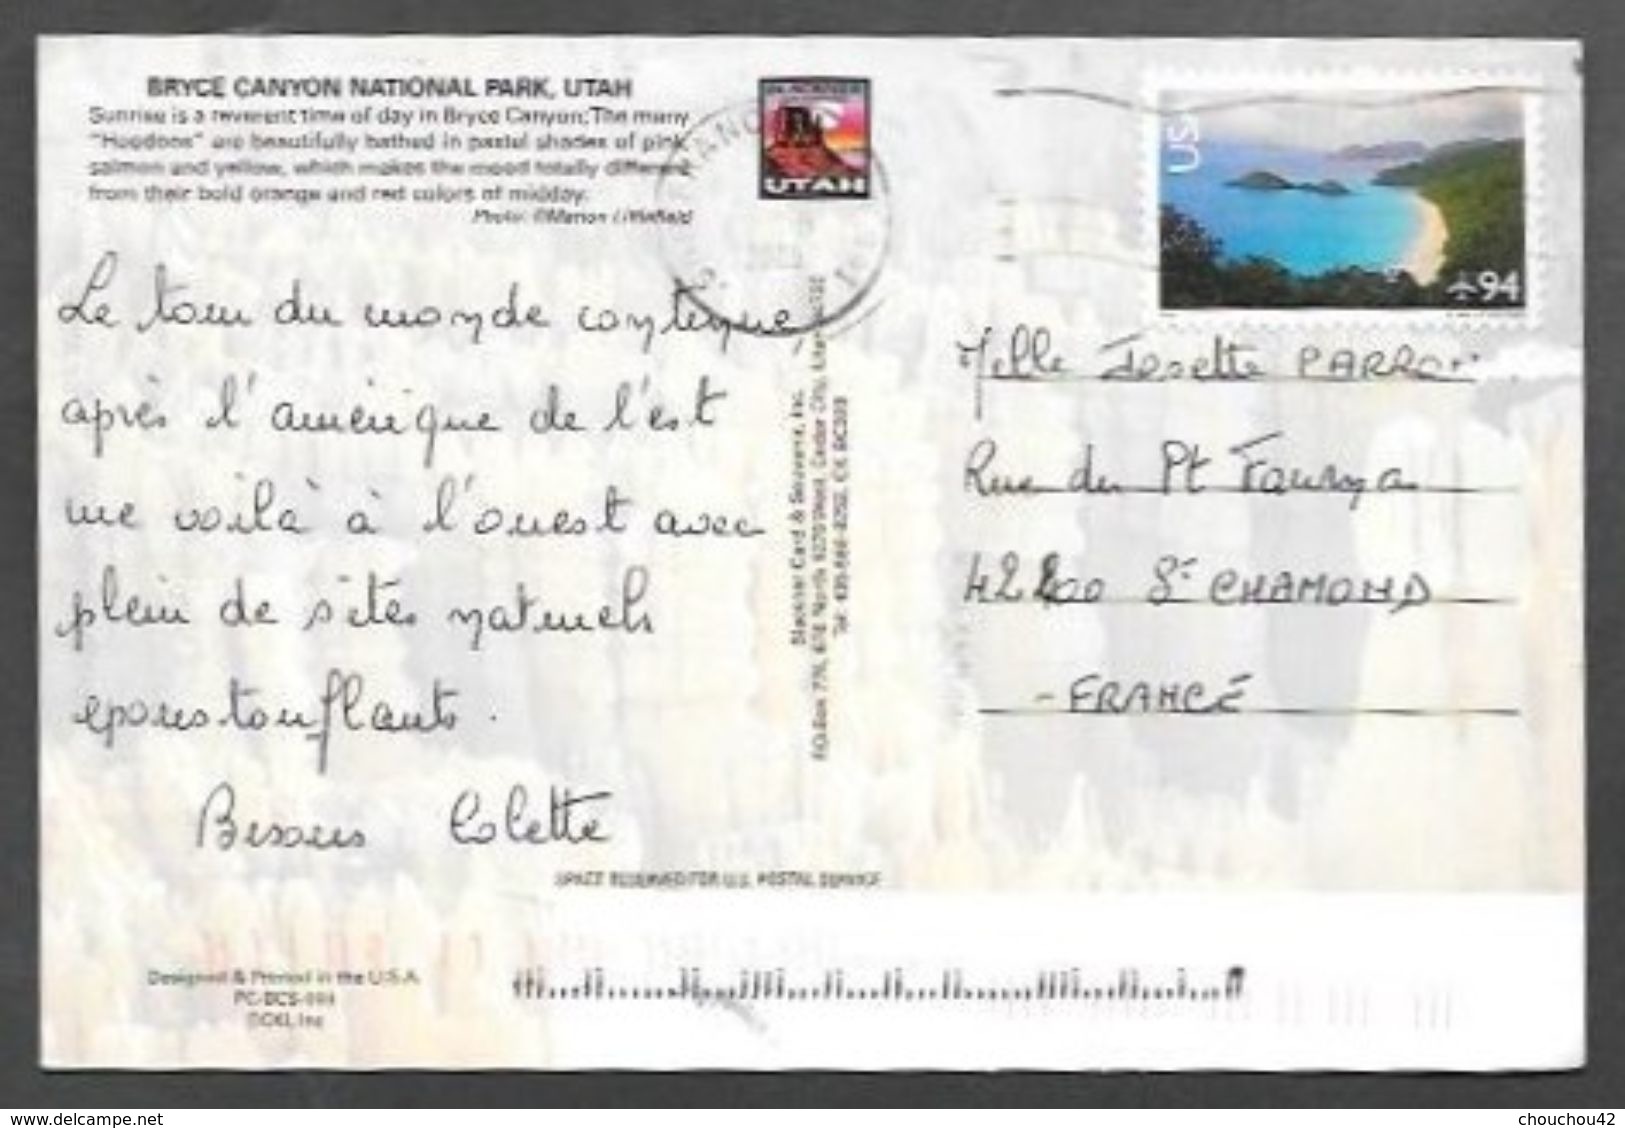 BRYCE CANYON NATIONAL PARK, UTAH
Sunrise is a reverent time of day in Bryce Canyon. The many
"Hoodoos" are beautifully bathed in pastel shades of pink,
salmon and yellow, which makes the mood totally different
from their bold orange and red colors of midday.
Photo: ©Marion Littlefield
UTAH
USA
94
Le tour du monde continue,
après l'amérique de l'est
me voilà à l'ouest avec
plein de sites naturels
époustouflants.
Bisous Colette
Melle Josette PARRO
Rue du Pt Fournas
42400 St CHAMOND
- FRANCE
Blackner Card & Souvenir, Inc.
SPACE RESERVED FOR U.S. POSTAL SERVICE
Designed & Printed in the U.S.A.
delcampe.net
chouchou42